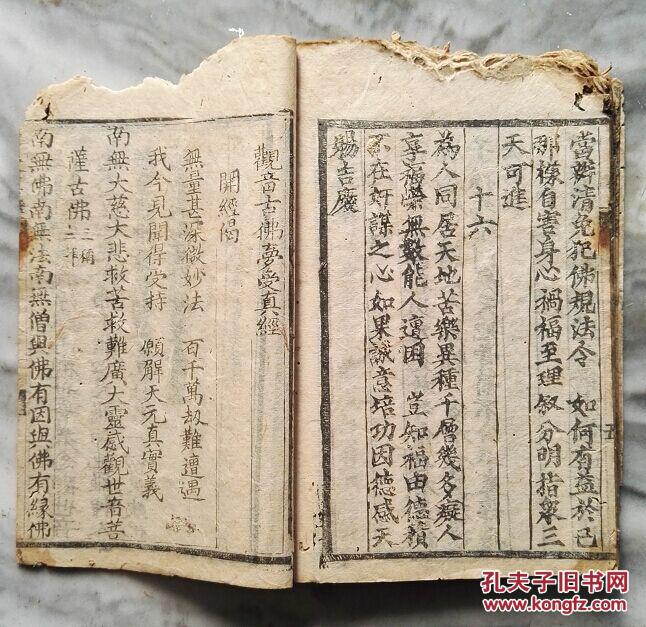 當辨清免犯佛規法令 如何有益於己
那樣自害身心禍福至理叙分明指第三
天可進
十六
為人同居天地苦樂異種千僧幾多癡人
享福榮無數能人遭困 豈知福由德積
不在奸謀之心如果誠意培功因德感天
賜吉慶
五
觀音古佛夢受真經
開經偈
無量甚深微妙法 百千萬劫難遭遇
我今見聞得受持 願解天元真實義
南無大慈大悲救苦救難廣大靈感觀世音菩
薩古佛三稱
南無佛南無法南無僧與佛有因與佛有緣佛
孔夫子旧书网
www.kongfz.com